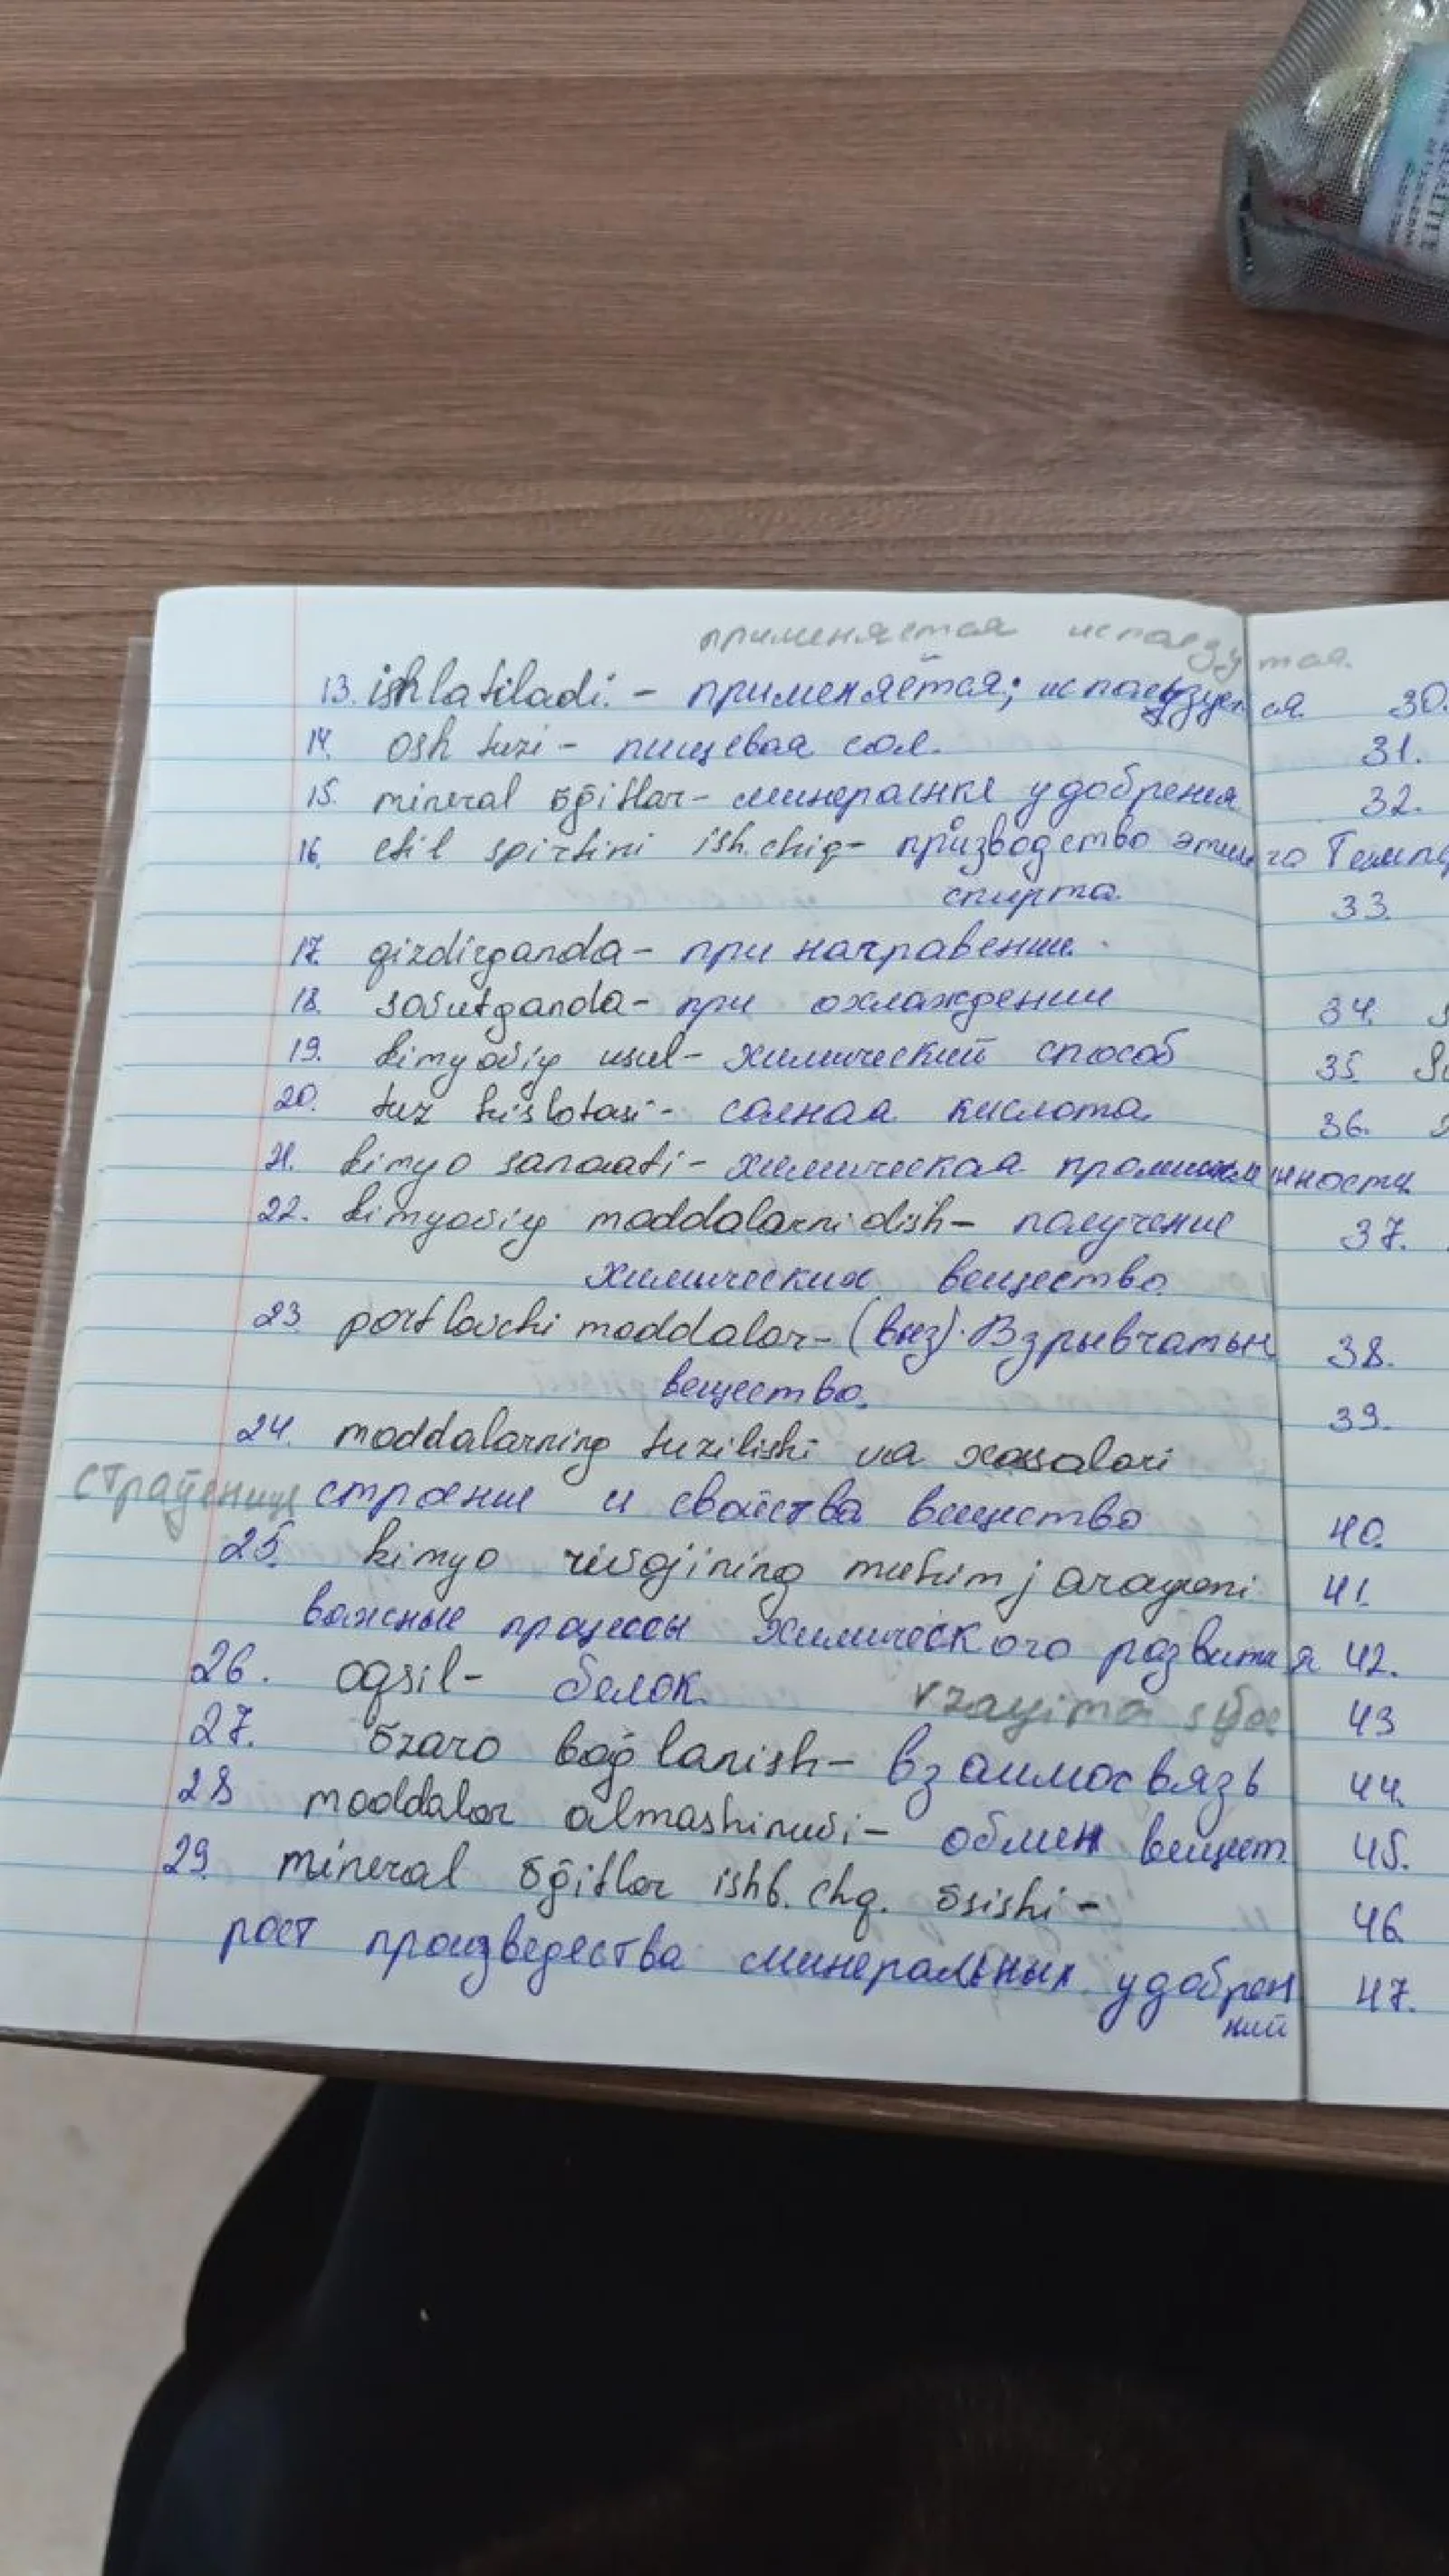 применяется используутся.
13. ishlatiladi. - применяется; используется 30.
14. osh tuzi - пищевая сол. 31.
15. mineral ōğitlar - минералнке удобрения 32.
16. etil spirtini ish.chiq - призводство этилго Темпе
спирта. 33.
17. qizdirganda - при награвении.
18. sovutganda - при охлаждении 34.
19. kimyoviy usul - химический способ 35.
20. tuz kislotasi - солная кислота. 36.
21. kimyo sanoati - химическая промишленности
22. kimyoviy moddalarni olish - получение 37.
химических вещество.
23. portlovchi moddalar - (выз). Взрывчатын 38.
вещество. 39.
24. moddalarning tuzilishi va xossalari
строение и свойства вещество 40.
25. kimyo rivojining muhim jarayoni 41.
важные процессы химического развития 42.
26. oqsil - белок. vzayima 43
27. ōzaro boğlanish - взаимосвязь 44.
28 moddalar almashinuvi - обмен вещест. 45.
29. mineral ōğitlar ishb. chq. ōsishi - 46
рост произведества минеральных удобрен 47.
ний